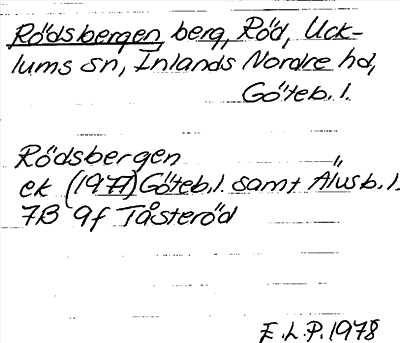 Rödsbergen, berg, Röd, Uck-
lums sn, Inlands Nordre hd,
Göteb. l.
Rödsbergen
ek (1977) Göteb. l. samt Älvsb. l.
7B 9f Tåsteröd
E.L.P. 1978